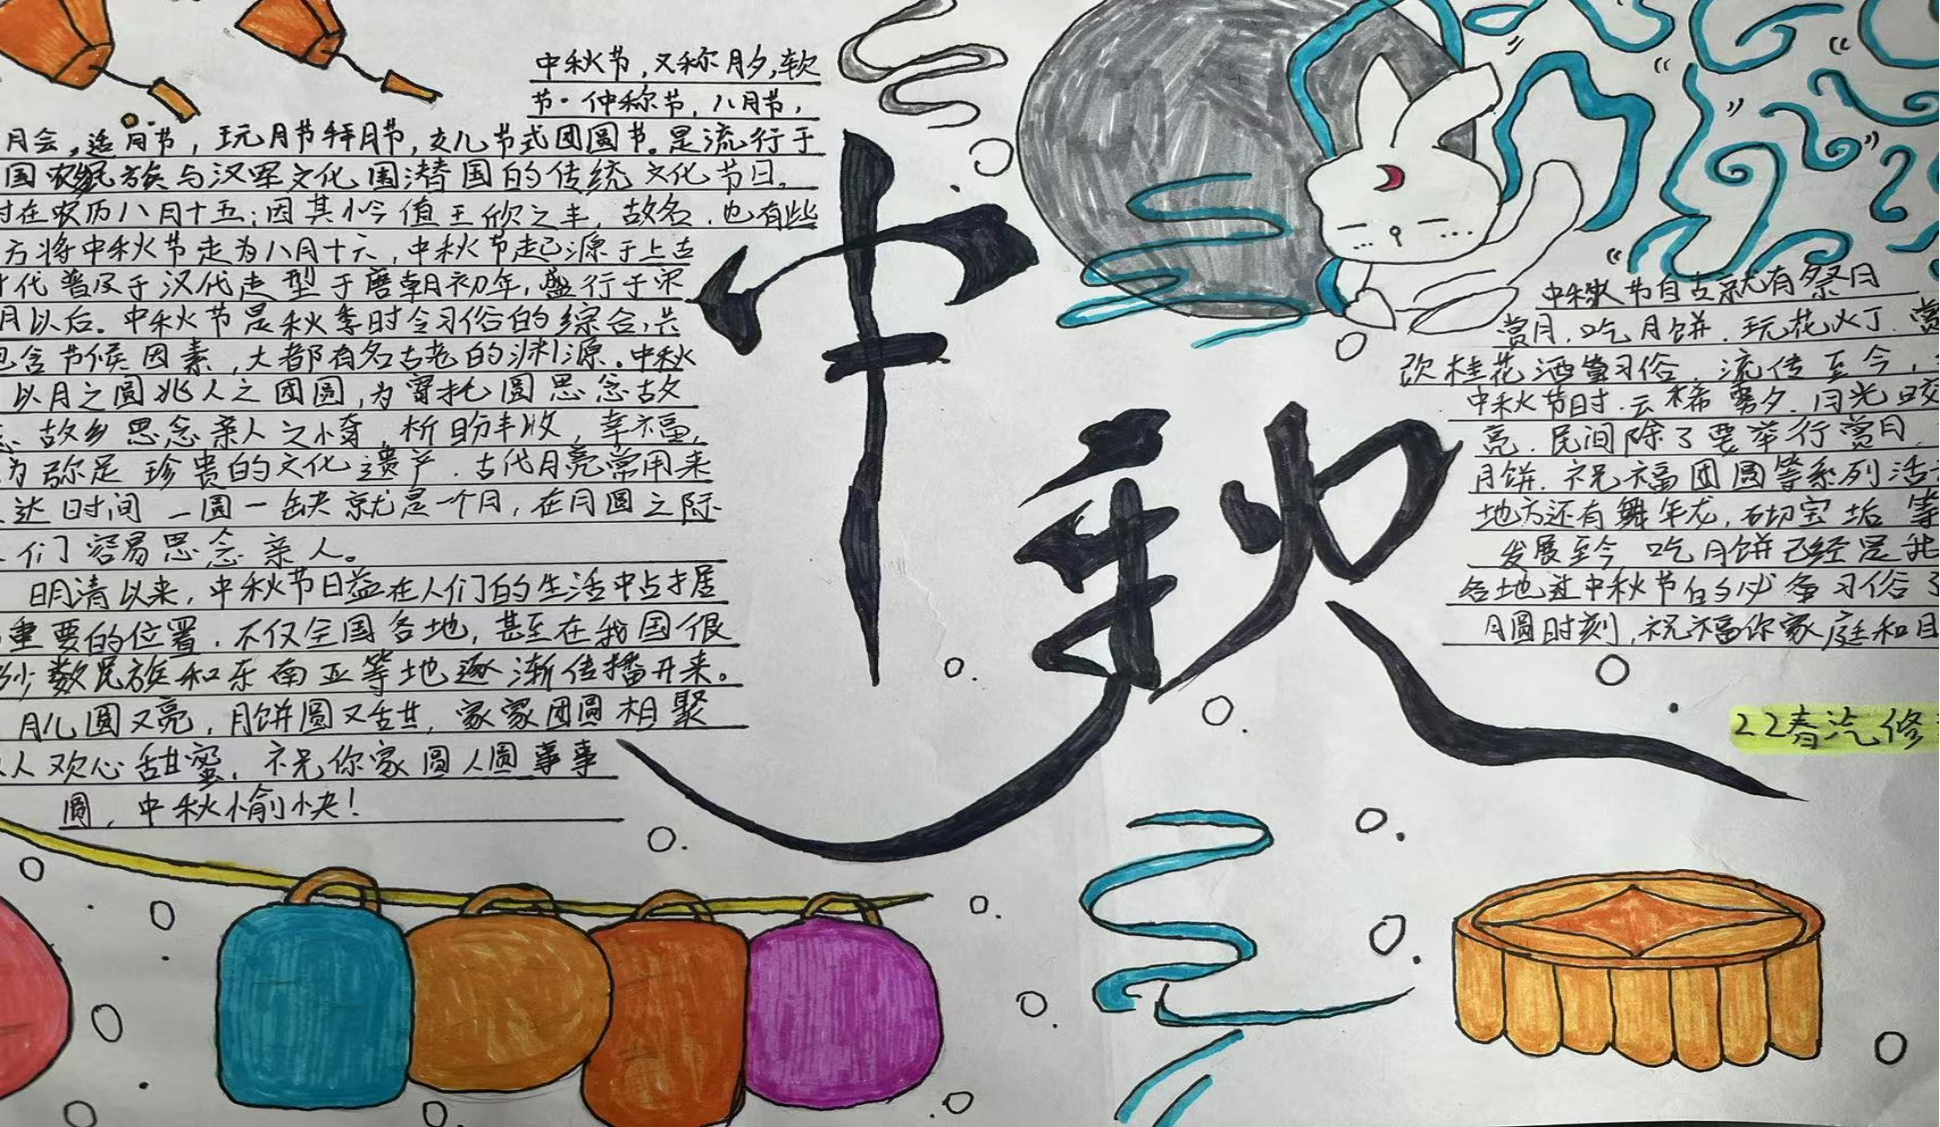 中秋节,又称月夕,软
节·仲称节,八月节,
月会,追月节,玩月节拜月节,女儿节式团圆节。是流行于
国农民族与汉军文化国潜国的传统文化节日。
时在农历八月十五;因其小今值王欣之丰,故名.也有些
方将中秋节走为八月十六,中秋节走己源于上古
代普及于汉代走型于磨朝初年,盛行于宋
月以后。中秋节是秋季时令习俗的综合,共
包含节候因素,大都有名古老的渊源。中秋
以月之圆兆人之团圆,为寄托圆思念故
故乡思念亲人之小奇,析盼丰收,幸福,
为弥足珍贵的文化遗产.古代月亮常用来
达日时间一圆一缺就是一个月,在月圆之际
们容易思念亲人。
明清以来,中秋节日益在人们的生活中占据
重要的位置.不仅全国各地,甚至在我国很
少数民族和东南亚等地逐渐传播开来。
月儿圆又亮,月饼圆又甜,家家团圆相聚
人欢心甜蜜,祝你家圆人圆事事
圆,中秋愉快!
中秋
中秋节自古就有祭月
赏月.吃月饼.玩花火丁.赏
饮桂花酒等习俗,流传至今,
中秋节时.云稀雾夕.月光皎
亮.民间除了要举行赏月
月饼.祝福团圆等系列活
地方还有舞年龙,砌宝垢等
发展至今吃月饼已经是我
各地过中秋节的必备习俗了
月圆时刻,祝福你家庭和
22春汽修